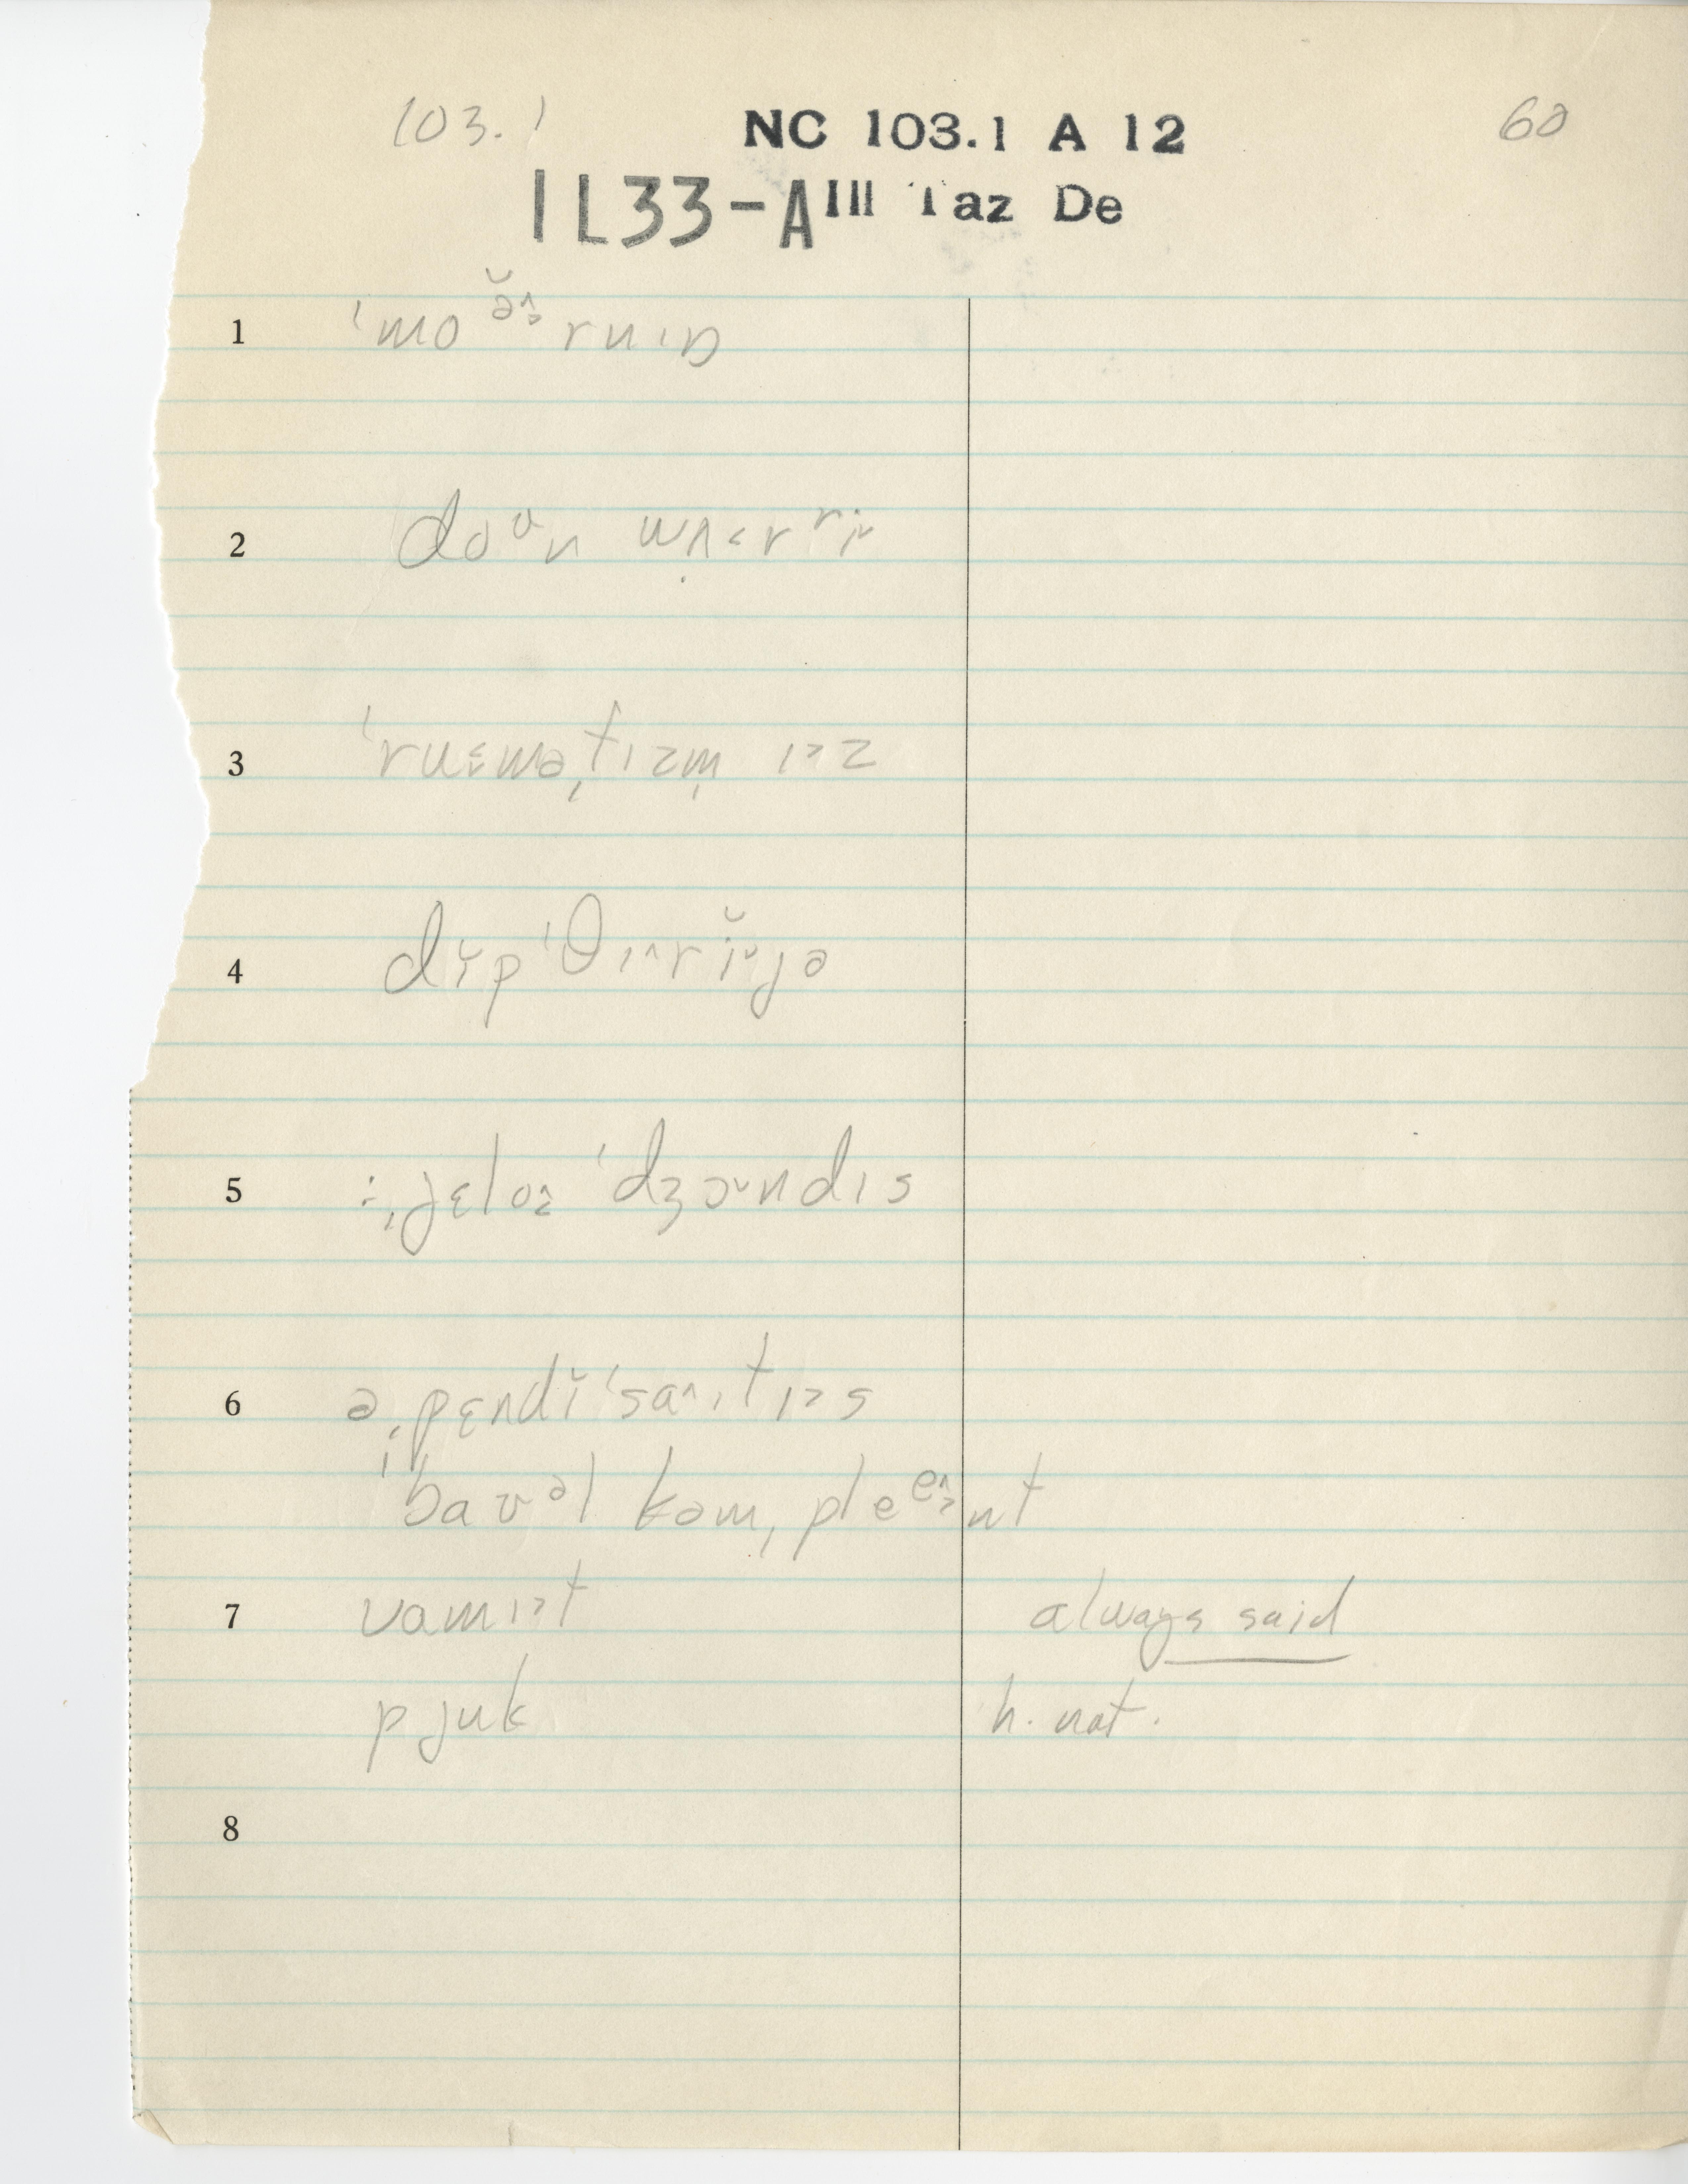 103.1 NC 103.1 A 12 60
IL33-A Ill Taz De
1 ˈmoə̆ruɪn
2 doᶷn wʌrrɪ
3 ˈruməˌtɪzm̩ ɪz
4 dɪ̆pˈθɪrɪ̆jə
5 ˌjɛlo ˈdʒɔndɪs
6 əˌpɛndĭˈsaɪtɪs
ˌbaʊᵊl kəmˌpleᵉnt
7 vamɪt always said
pjuk h. nat.
8